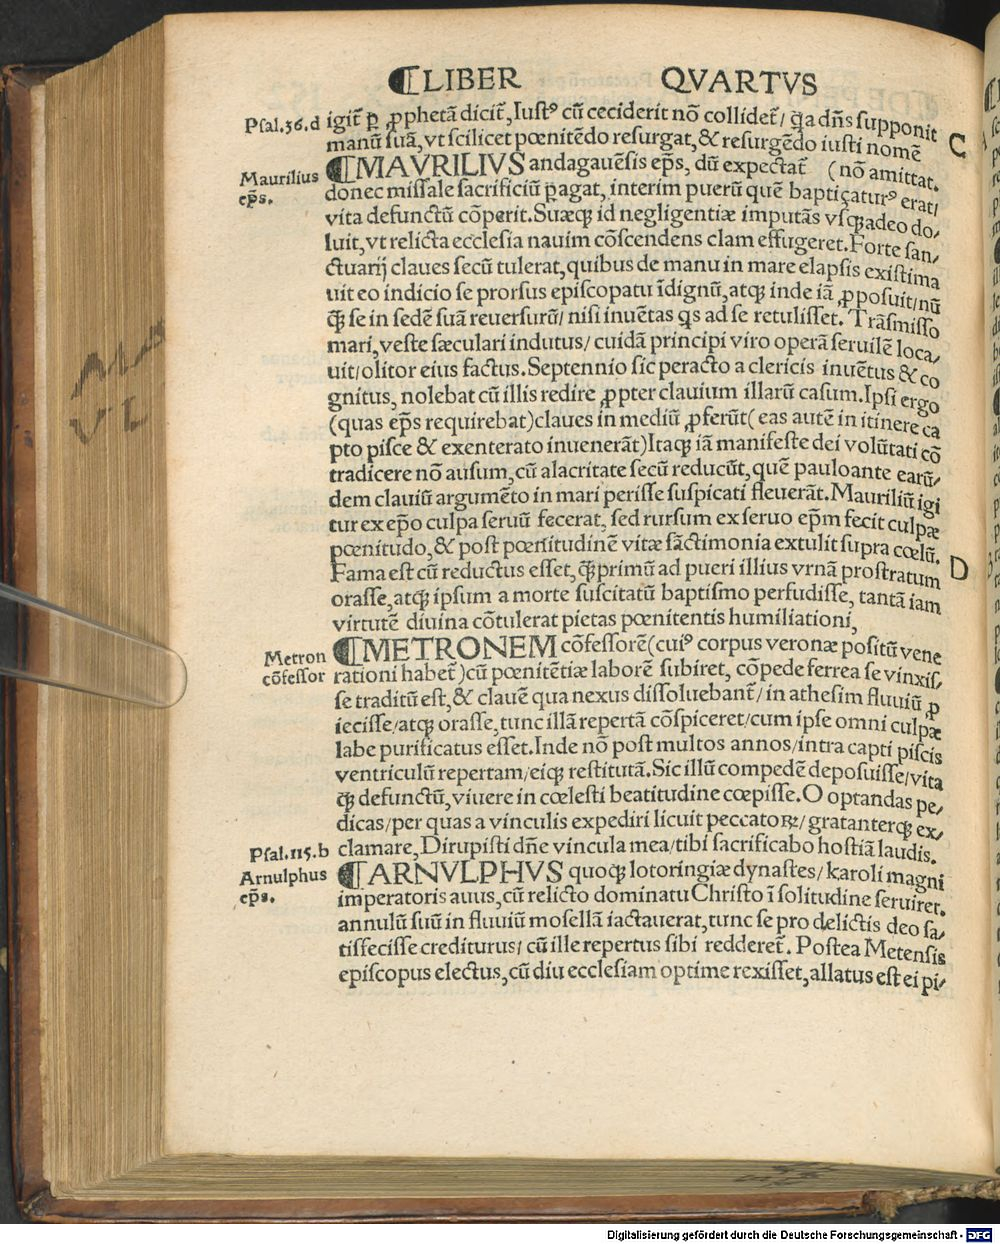 ⸿LIBER QVARTVS
Psal.36.d
igit̃ ꝑ ꝓphetã dicit̃, Iustꝰ cũ ceciderit nõ collidet̃/ q̃a dñs supponit
manũ suã, vt scilicet pœnitẽdo resurgat, & resurgẽdo iusti nomẽ
C
Maurilius
ep̃s.
⸿MAVRILIVS andagauẽsis ep̃s, dũ expectat̃ (nõ amittat.
donec missale sacrificiũ ꝑagat, interim puerũ quẽ baptiçaturꝰ erat/
vita defunctũ cõperit. Suæqꝫ id negligentiæ imputãs vsqꝫadeo do⸗
luit, vt relicta ecclesia nauim cõscendens clam effugeret. Forte san⸗
ctuarij claues secũ tulerat, quibus de manu in mare elapsis existima
uit eo indicio se prorsus episcopatu ĩdignũ, atqꝫ inde iã ꝓposuit/ nũ
q̃ꝫ se in sedẽ suã reuersurũ/ nisi inuẽtas qs ad se retulisset. Trãsmisso
mari, veste sæculari indutus/ cuidã principi viro operã seruilẽ loca⸗
uit/ olitor eius factus. Septennio sic peracto a clericis inuẽtus & co
gnitus, nolebat cũ illis redire ꝓpter clauium illarũ casum. Ipsi ergo
(quas ep̃s requirebat) claues in mediũ ꝓferũt (eas autẽ in itinere ca
pto pisce & exenterato inuenerãt) Itaqꝫ iã manifeste dei volũtati cõ
tradicere nõ ausum, cũ alacritate secũ reducũt, quẽ pauloante earũ⸗
dem clauiũ argumẽto in mari perisse suspicati fleuerãt. Mauriliũ igi
tur ex ep̃o culpa seruũ fecerat, sed rursum ex seruo ep̃m fecit culpæ
pœnitudo, & post pœnitudinẽ vitæ sãctimonia extulit supra cœlũ.
Fama est cũ reductus esset, q̃ꝫprimũ ad pueri illius vrnã prostratum
D
orasse, atqꝫ ipsum a morte suscitatũ baptismo perfudisse, tantã iam
virtutẽ diuina cõtulerat pietas pœnitentis humiliationi,
Metron
cõfessor
⸿METRONEM cõfessorẽ (cuiꝰ corpus veronæ positũ vene
rationi habet̃) cũ pœnitẽtiæ laborẽ subiret, cõpede ferrea se vinxis⸗
se traditũ est, & clauẽ qua nexus dissoluebant̃/ in athesim fluuiũ ꝓ
iecisse/ atqꝫ orasse, tunc illã repertã cõspiceret/ cum ipse omni culpæ
labe purificatus esset. Inde nõ post multos annos/ intra capti piscis
ventriculũ repertam/ eiqꝫ restitutã. Sic illũ compedẽ deposuisse/ vita
q̃ꝫ defunctũ, viuere in cœlesti beatitudine cœpisse. O optandas pe⸗
dicas/ per quas a vinculis expediri licuit peccatoꝝ/ gratanterqꝫ ex⸗
clamare, Dirupisti dñe vincula mea/ tibi sacrificabo hostiã laudis.
Psal.115.b
Arnulphus
ep̃s.
⸿ARNVLPHVS quoqꝫ lotoringiæ dynastes/ karoli magni
imperatoris auus, cũ relicto dominatu Christo ĩ solitudine seruiret.
annulũ suũ in fluuiũ mosellã iactauerat, tunc se pro delictis deo sa⸗
tisfecisse crediturus/ cũ ille repertus sibi redderet̃. Postea Metensis
episcopus electus, cũ diu ecclesiam optime rexisset, allatus est ei pi⸗
Digitalisierung gefördert durch die Deutsche Forschungsgemeinschaft - DFG